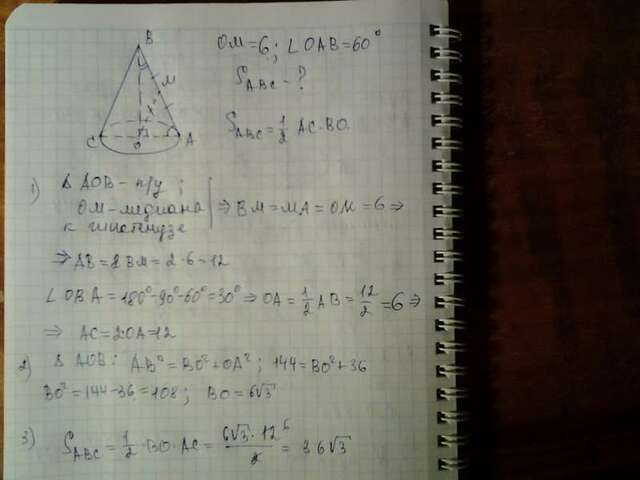 B
M
C
O
A
OM = 6; ∠OAB = 60°
S_ABC - ?
S_ABC = 1/2 AC·BO.
1) Δ AOB - п/у ;
OM - медиана ⇒ BM = MA = OM = 6 ⇒
к гипотенузе
⇒ AB = 2BM = 2·6 = 12
∠OBA = 180° - 90° - 60° = 30° ⇒ OA = 1/2 AB = 12/2 = 6 ⇒
⇒ AC = 2·OA = 12
2) Δ AOB: AB² = BO² + OA²; 144 = BO² + 36
BO² = 144 - 36 = 108; BO = 6√3
3) S_ABC = 1/2 · BO · AC = 6√3 · 12 6 / 2 = 36√3